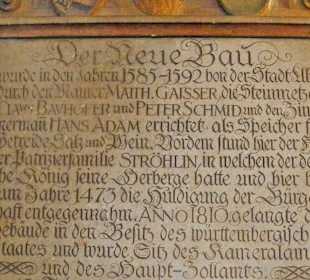 Der Neue Bau
wurde in den Jahren 1585-1592 von der Stadt Ul
durch den Maurer MATH. GAISSER, die Steinmetz
CLAUS BAVHOFER und PETER SCHMID und den Zim
mermañ HANS ADAM errichtet als Speicher f
Getreide Salz und Wein. Vordem stund hier der H
der Patrizierfamilie STRÖHLIN, in welchem der de
sche König seine Herberge hatte und hier i
im Jahre 1473 die Huldigung der Bürge
schaft entgegennahm. ANNO 1810 gelangte d
Gebäude in den Besitz des württembergisch
Staates und wurde Sitz des Kameralam
und des Haupt-Zollamtes